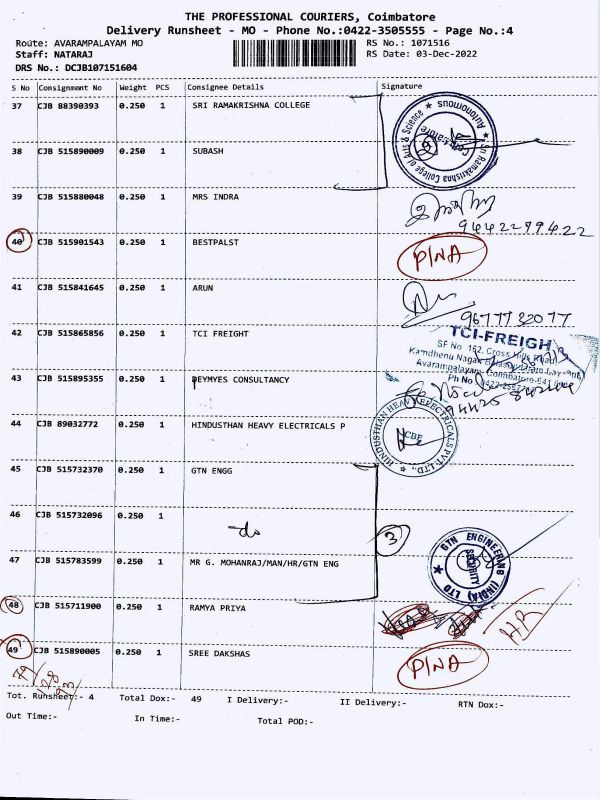 THE PROFESSIONAL COURIERS, Coimbatore
Delivery Runsheet - MO - Phone No.:0422-3505555 - Page No.:4
Route: AVARAMPALAYAM MO RS No.: 1071516
Staff: NATARAJ RS Date: 03-Dec-2022
DRS No.: DCJB107151604
S No Consignment No Weight PCS Consignee Details Signature
37 CJB 88390393 0.250 1 SRI RAMAKRISHNA COLLEGE
Sri Ramakrishna College of Arts & Science Autonomous Coimbatore
38 CJB 515890009 0.250 1 SUBASH
39 CJB 515880048 0.250 1 MRS INDRA
9442299422
40 CJB 515901543 0.250 1 BESTPALST PINA
41 CJB 515841645 0.250 1 ARUN
9677732077
42 CJB 515865856 0.250 1 TCI FREIGHT
TCI-FREIGH
SF No 162, Cross Hills Road
Kamdhenu Nagar
Avarampalayam, Coimbatore-641
Ph No
43 CJB 515895355 0.250 1 DEYMYES CONSULTANCY
44 CJB 89032772 0.250 1 HINDUSTHAN HEAVY ELECTRICALS P
HINDUSTHAN HEAVY ELECTRICALS PVT. LTD., CBE
45 CJB 515732370 0.250 1 GTN ENGG
46 CJB 515732096 0.250 1 do 3
47 CJB 515783599 0.250 1 MR G. MOHANRAJ/MAN/HR/GTN ENG
GTN ENGINEERING (INDIA) LTD SECURITY
48 CJB 515711900 0.250 1 RAMYA PRIYA HR
49 CJB 515890005 0.250 1 SREE DAKSHAS PINA
Tot. Runsheet:- 4 Total Dox:- 49 I Delivery:- II Delivery:- RTN Dox:-
Out Time:- In Time:- Total POD:-